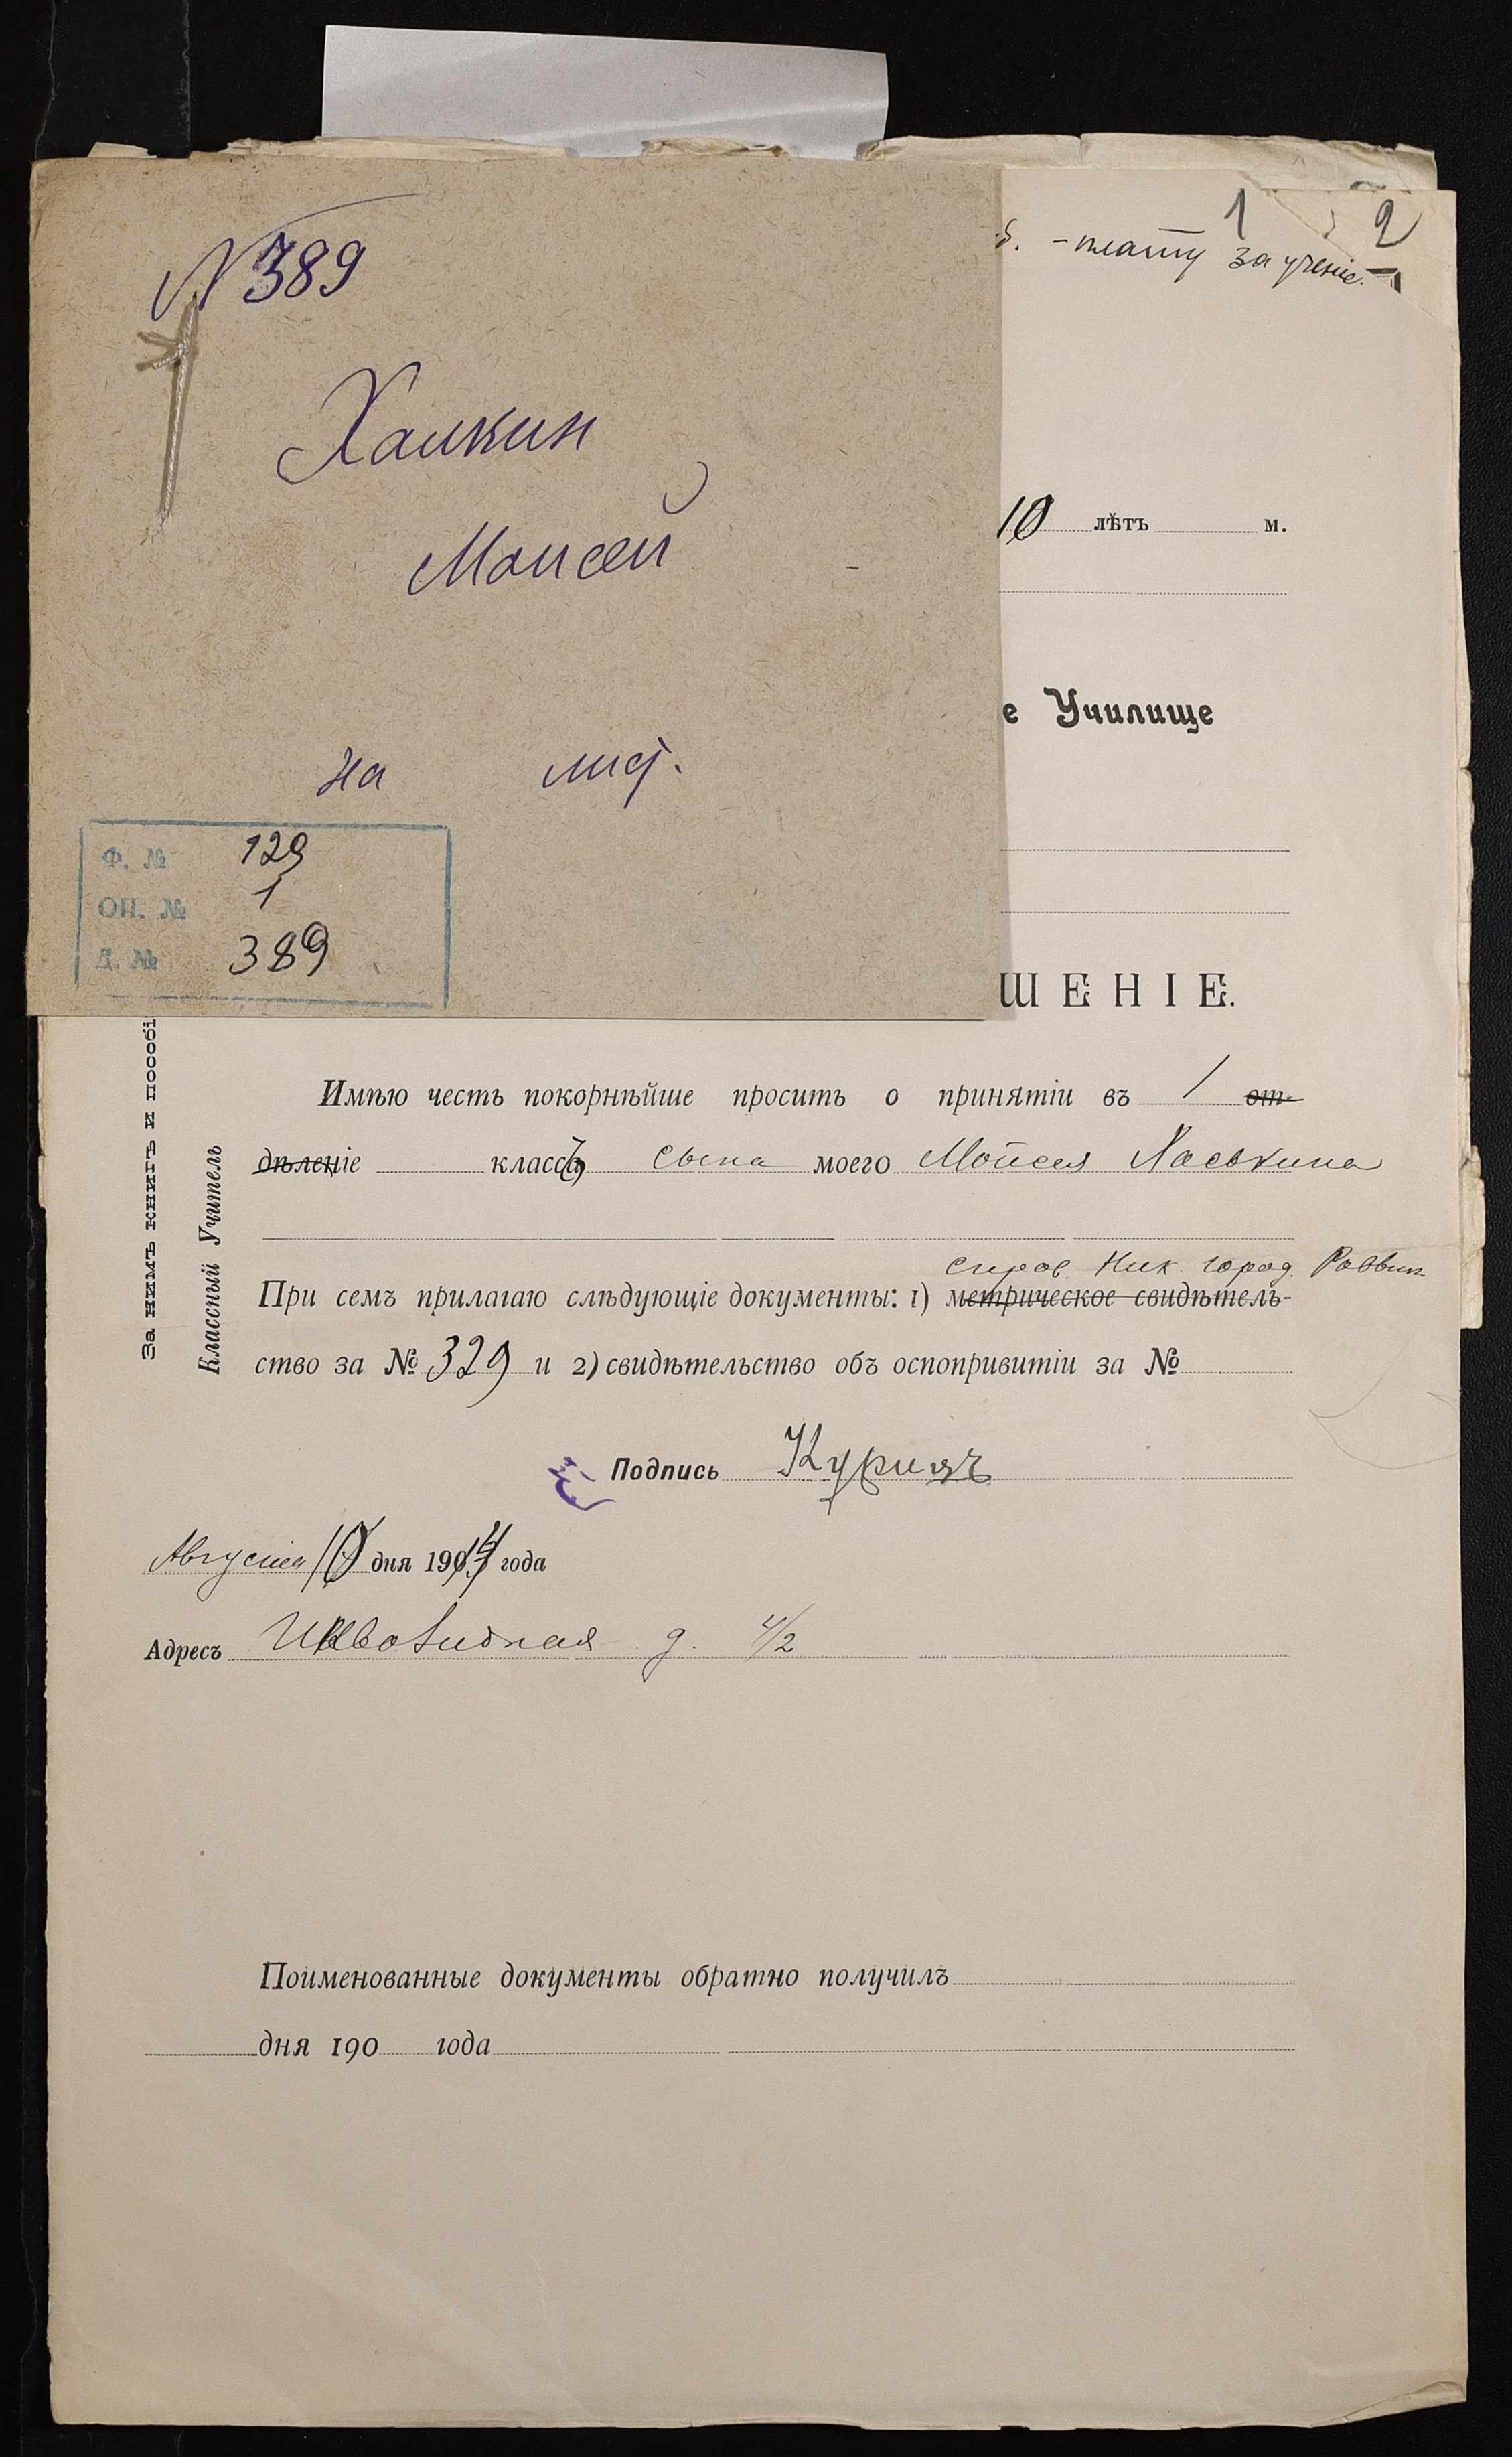 № 389
Халкин
Моисей
на лист.
Ф. № 129
ОП. № 1
Д. № 389
1 2
б. - плату за ученіе.
10 лѣтъ м.
е Училище
ШЕНІЕ.
За нимъ книгъ и пособі
Классный Учитель
Имѣю честь покорнѣйше просить о принятіи въ 1 от-
дѣленіе классъ сына моего Мойсея Хаськина
справ. Ник. город. Раввин.
При семъ прилагаю слѣдующіе документы: 1) метрическое свидѣтель-
ство за № 329 и 2) свидѣтельство объ оспопривитіи за №
Подпись
Августа 10 дня 1914 года
Адресъ д. 4/2
Поименованные документы обратно получилъ
дня 190 года